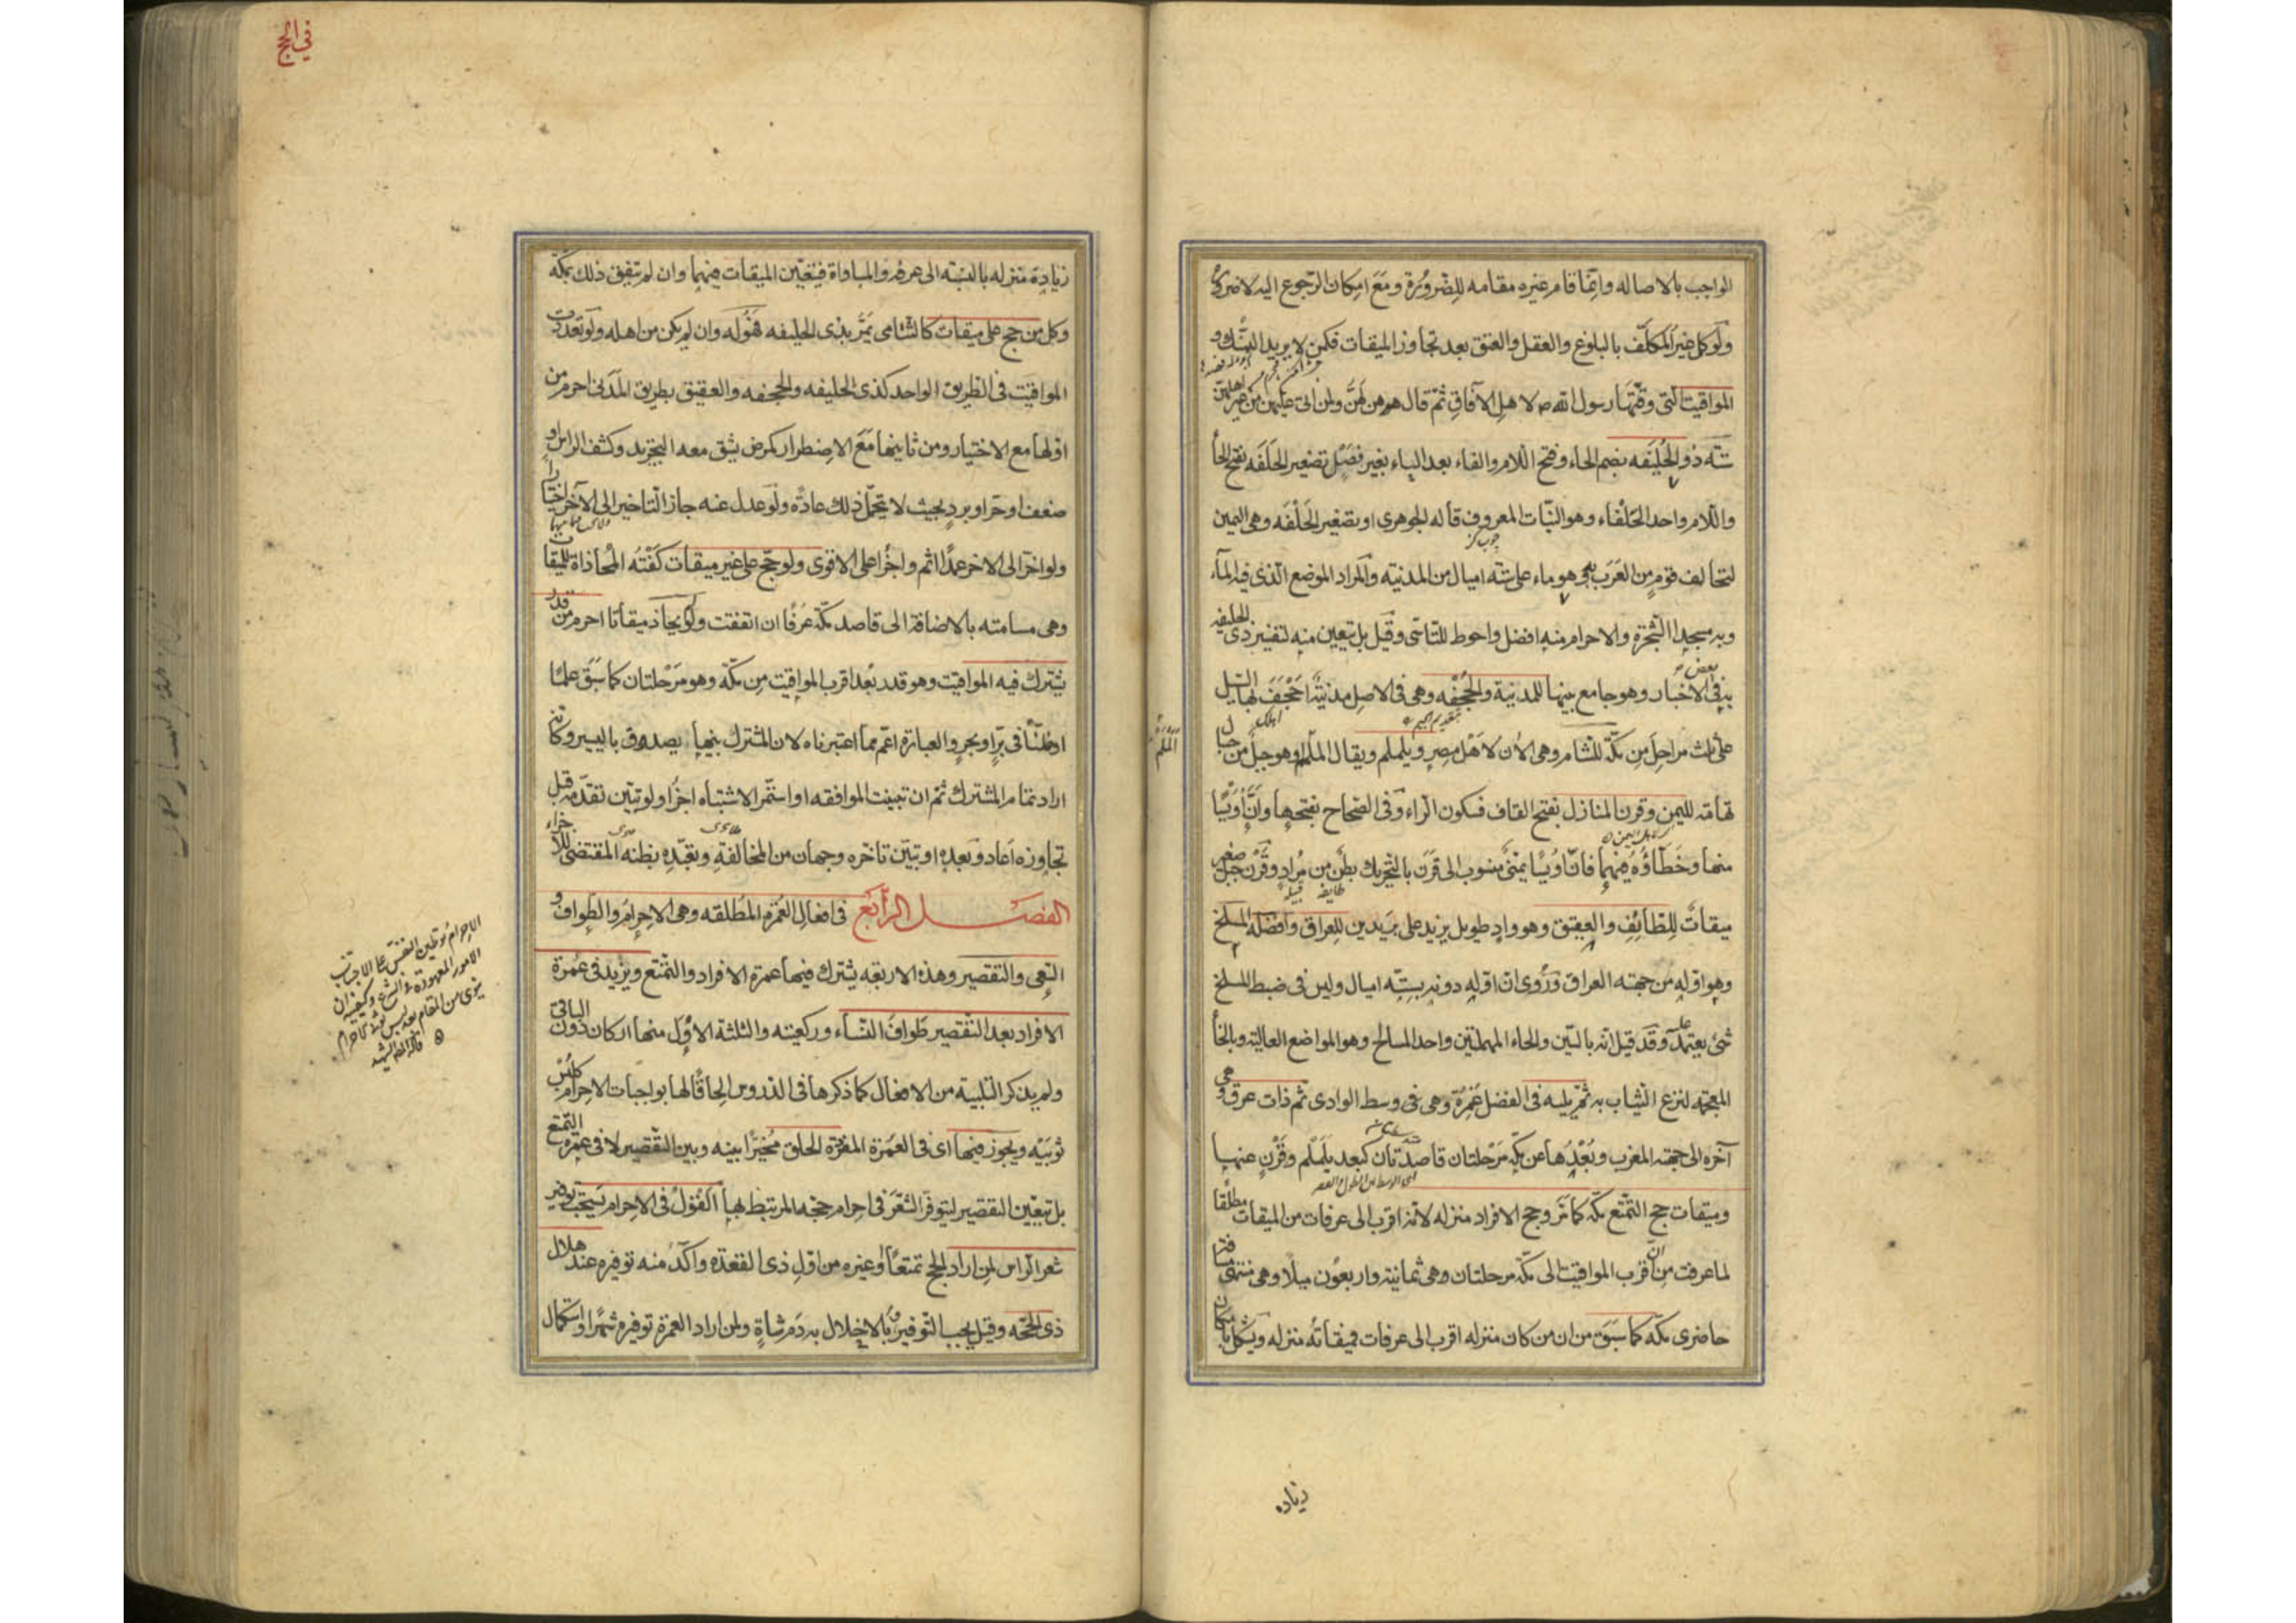 الواجب بالاصاله وانما قام غيره مقامه للضرورة ومع امكان الرجوع اليه لا ضرورة
ولو كمل غير المكلف بالبلوغ والعقل والعتق بعد تجاوز الميقات فكمن لا يريد النسك و
المواقيت التي وقتها رسول الله ص لاهل الآفاق ثم قال هن لهن ولمن اتى عليهن من غير اهلهن
ستة ذو الحليفه بضم الحاء وفتح اللام والفاء بعد الياء بغير فصل تصغير الحلفه بفتح الحاء
واللام واحد الحلفاء وهو النبات المعروف قاله الجوهرى او تصغير الحلفه وهى اليمين
لتحالف قوم من العرب به وهو ماء على ستة اميال من المدينه والمراد الموضع الذى فيه الماء
وبه مسجد الشجرة والاحرام منه افضل واحوط للتاسى وقيل بل يتعين منه لتفسير ذى الحليفه
به فى بعض الاخبار وهو جامع بينها للمدينة والجحفه وهى فى الاصل مدينة اجحف بها السيل
على ثلث مراحل من مكة للشام وهى الان لاهل مصر ويلملم ويقال الملم وهو جبل من جبال
تهامه لليمن وقرن المنازل بفتح القاف فسكون الراء وفى الصحاح بفتحها وان اويسا
منها وخطاؤه فيهما فان اويسا يمنى منسوب الى قرن بالتحريك بطن من مراد وقرن جبل صغير
ميقات للطائف والعقيق وهو واد طويل يزيد على بريدين للعراق وافضله المسلخ
وهو اوله من جهة العراق وروى ان اوله دونه بستة اميال وليس فى ضبط المسلخ
شئ يعتمد عليه وقد قيل انه بالسين والحاء المهملتين واحد المسالح وهو المواضع العالية وبالخاء
المعجمه لنزع الثياب به ثم يليه فى الفضل غمرة وهى فى وسط الوادى ثم ذات عرق وهى
آخره الى جهة المغرب وبعدها عن مكة مرحلتان قاصدتان كبعد يلملم وقرن عنها
وميقات حج التمتع مكة كما مر وحج الافراد منزله لانه اقرب الى عرفات من الميقات مطلقا
لما عرفت من ان اقرب المواقيت الى مكة مرحلتان وهى ثمانية واربعون ميلا وهى منتهى مسافة
حاضرى مكة كما سبق من ان من كان منزله اقرب الى عرفات فميقاته منزله ويشكل بامكان
زياده
الملم
فى الحج
زيادة منزله بالنسبة الى عرفه والمساواة فيتعين الميقات فيهما وان لم يتفق ذلك بمكة
وكل من حج على ميقات كالشامى يمر بذى الحليفه فهو له وان لم يكن من اهله ولو تعددت
المواقيت فى الطريق الواحد كذى الحليفه والجحفه والعقيق بطريق المدنى احرم من
اولها مع الاختيار ومن ثانيها مع الاضطرار كمرض يشق معه التجريد وكشف الراس او
ضعف او حر او برد بحيث لا يتحمل ذلك عادة ولو عدل عنه جاز التاخير الى الآخر اختيارا
ولو اخر الى الاخر عمدا اثم واجزا على الاقوى ولو حج على غير ميقات كفته المحاذاة للميقات
وهى مسامتته بالاضافة الى قاصد مكة عرفا ان اتفقت ولو لم يحاذ ميقاتا احرم من قدر
يشترك فيه المواقيت وهو قدر بعد اقرب المواقيت من مكة وهو مرحلتان كما سبق علما
او ظنا فى بر او بحر والعبارة اعم مما اعتبرناه لان المشترك بينها يصدق باليسير وكانه
اراد تمام المشترك ثم ان تبينت الموافقه او استمر الاشتباه اجزا ولو تبين تقدمه قبل
تجاوزه اعاد وبعده او تبين تاخره وجهان من المخالفة وتعبده بظنه المقتضى للاجزاء
الفصل الرابع فى افعال العمرة المطلقه وهى الاحرام والطواف و
السعى والتقصير وهذه الاربعه يشترك فيها عمرة الافراد والتمتع ويزيد فى عمرة
الافراد بعد التقصير طواف النساء وركعتيه والثلثة الاول منها اركان دون الباقى
ولم يذكر التلبية من الافعال كما ذكرها فى الدروس الحاقا لها بواجبات الاحرام كلبس
ثوبيه ويجوز فيها اى فى العمرة المفردة الحلق مخيرا بينه وبين التقصير لا فى عمرة التمتع
بل يتعين التقصير ليتوفر الشعر فى احرام حجه المرتبط بها القول فى الاحرام يستحب توفير
شعر الراس لمن اراد الحج تمتعا او غيره من اول ذى القعدة واكد منه توفيره عند هلال
ذى الحجه وقيل يجب التوفير وبالاخلال به دم شاة ولمن اراد العمرة توفيره شهرا واستكمال
الاحرام توطين النفس على الاجتناب
الامور المعهودة فى الشرع